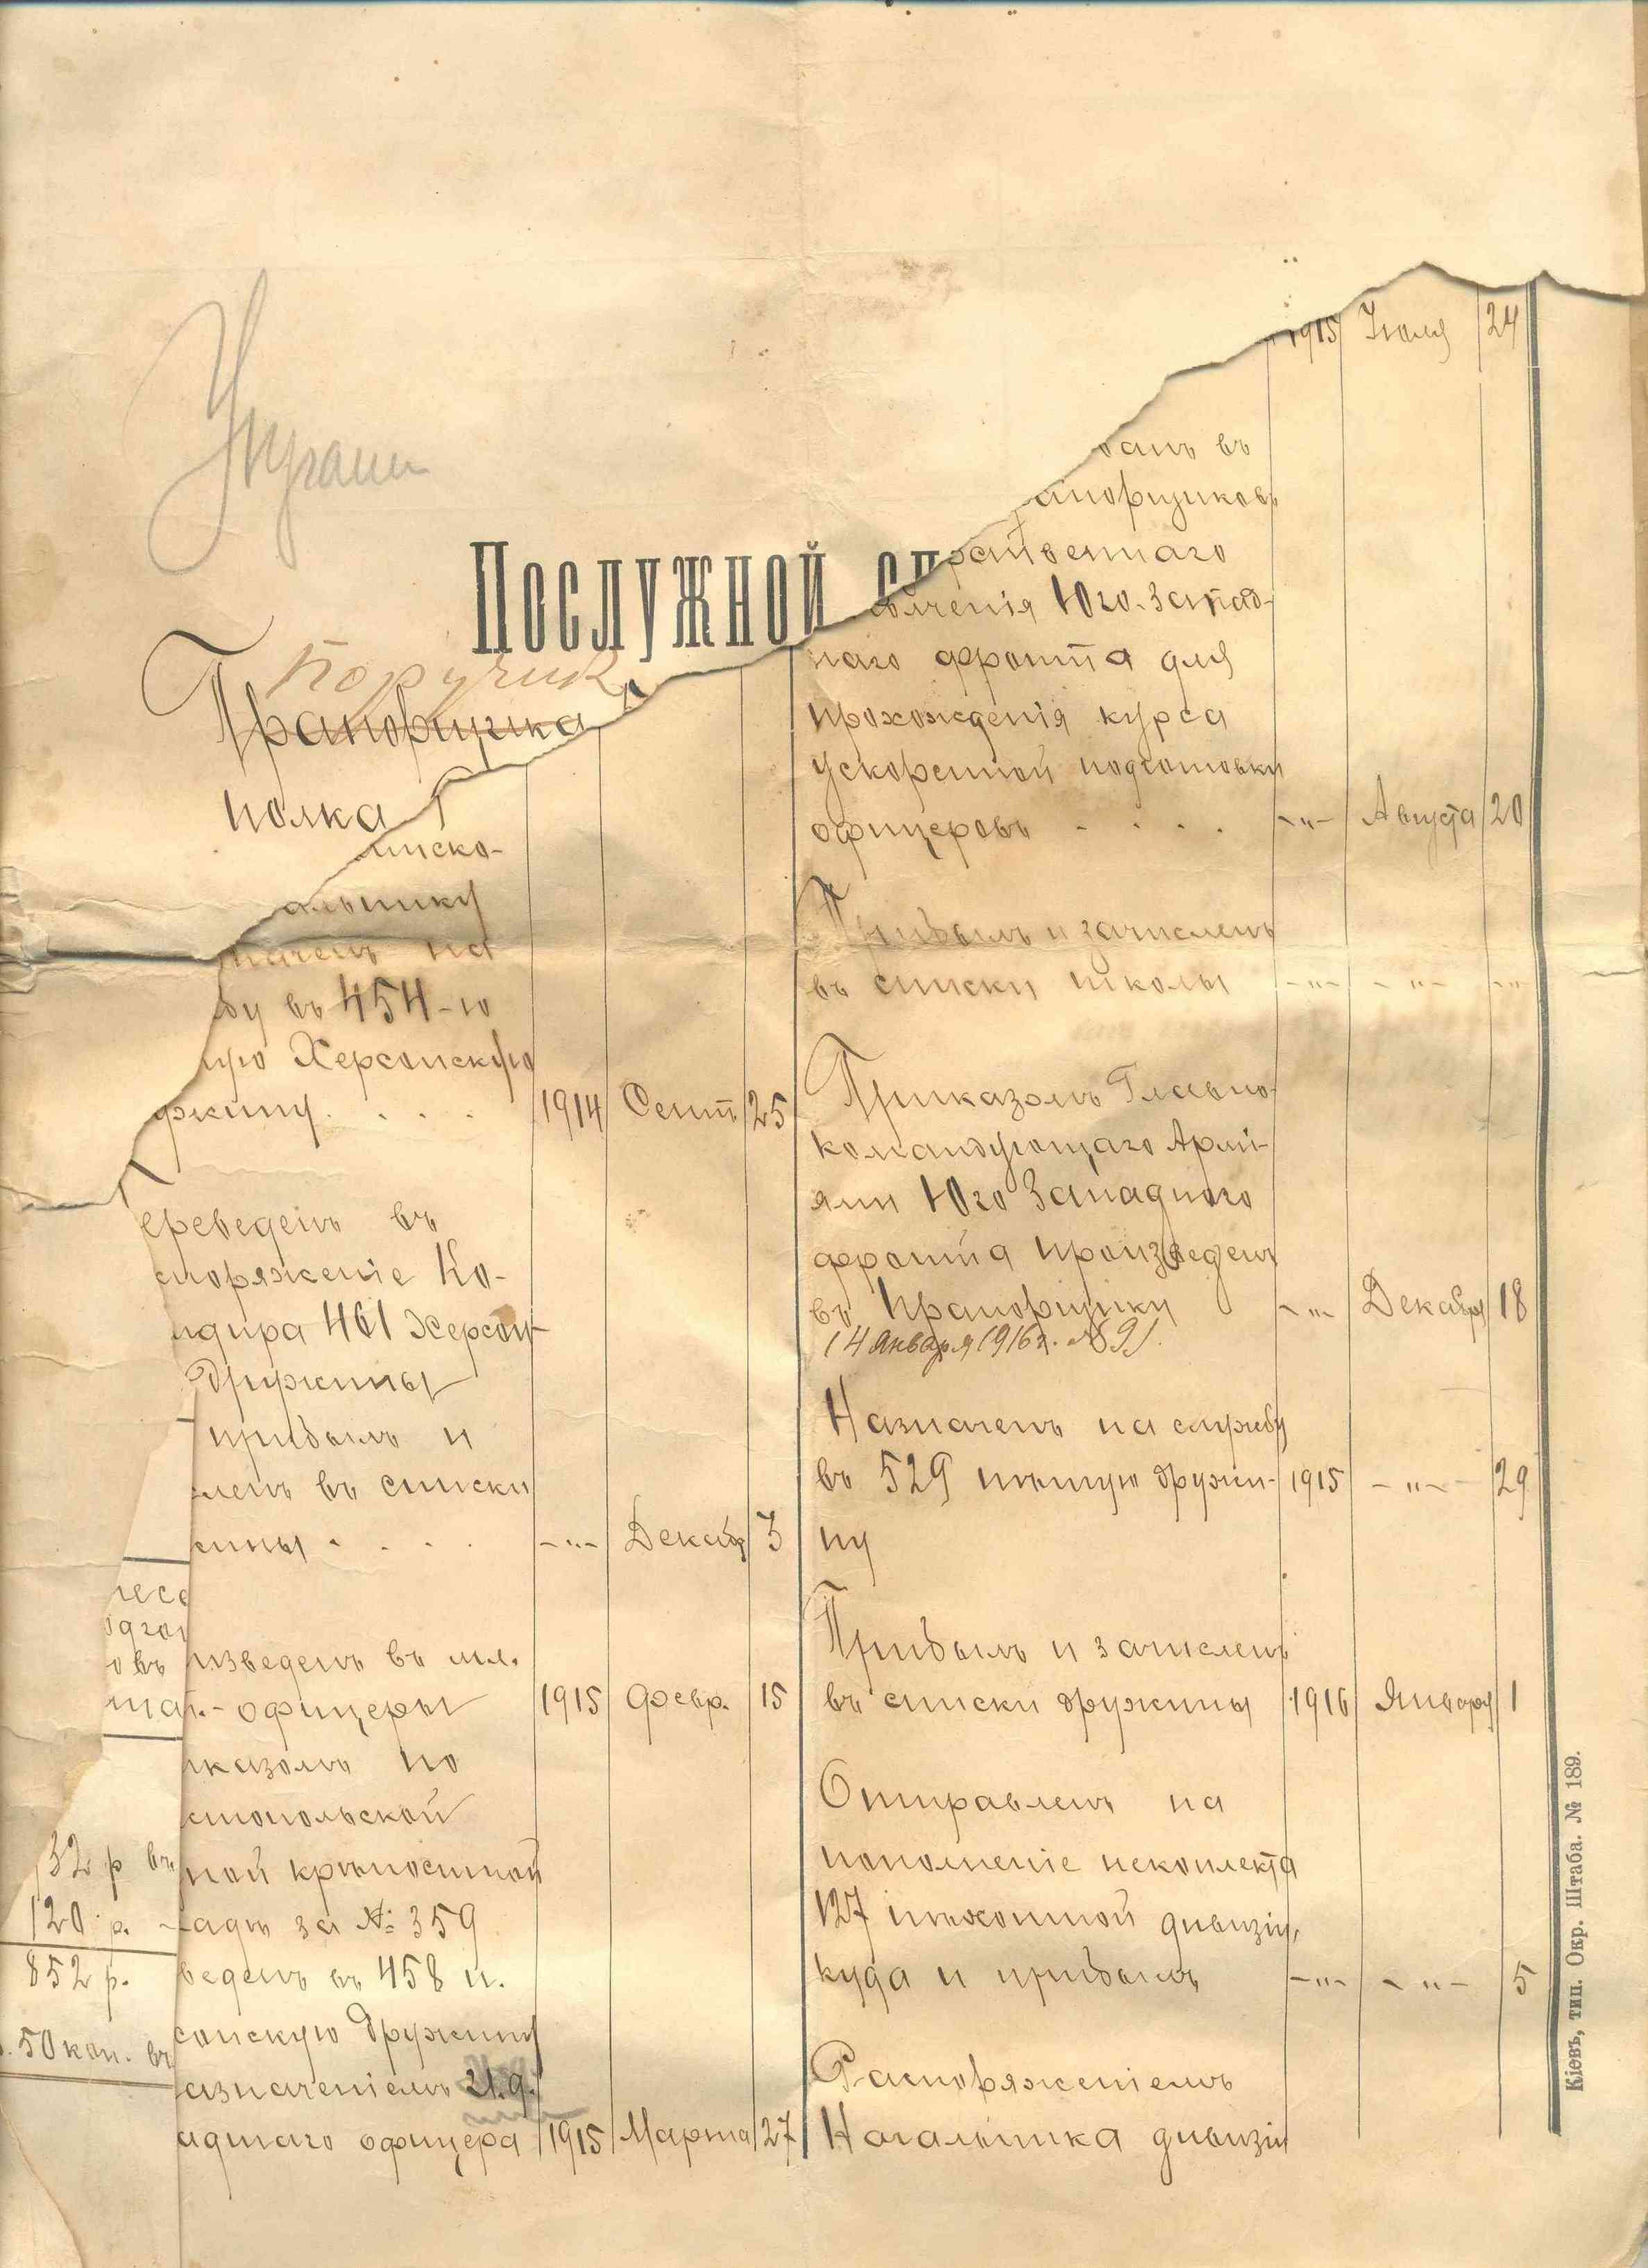 Послужной сп
Поручик
Прапорщика
полка
инско-
альнику
начень на
бу въ 454-ю
шую Херсонскую
ужину . . . 1914 Сент 25
ереведенъ въ
споряженіе Ко-
ндира 461 Херсон-
дружины
прибылъ и
ленъ въ списки
жины . . . -"- Декабр 3
изведенъ въ мл.
унт.-офицеры 1915 Февр. 15
иказомъ по
стопольской
ной крѣпостной
адѣ за № 359
веденъ въ 458 п.
сонскую дружину
азначеніемъ И.д.
адшаго офицера 1915 Марта 27
одгот
овъ
32 р въ
120 р.
852 р.
50 коп. въ
1915 Іюля 24
ванъ въ
апорщиковъ
рственнаго
олченія Юго-Запад-
наго фронта для
прохожденія курса
ускоренной подготовки
офицеровъ . . . . -"- Августа 20
Прибылъ и зачисленъ
въ списки школы -"- -"- -"-
Приказомъ Главно-
командующаго Арми-
ями Юго Западного
фронта произведенъ
въ Прапорщики -"- Декабр 18
(4 Января 1916 г. № 9)
Назначенъ на службу
въ 529 пѣшую дружи- 1915 -"- 29
ну
Прибылъ и зачисленъ
въ списки дружины 1916 Января 1
Отправленъ на
пополненіе некоплекта
127 пѣхотной дивизіи,
куда и прибылъ -"- -"- 5
Распоряженіемъ
Начальника дивизіи
Кіевъ, тип. Окр. Штаба. № 189.